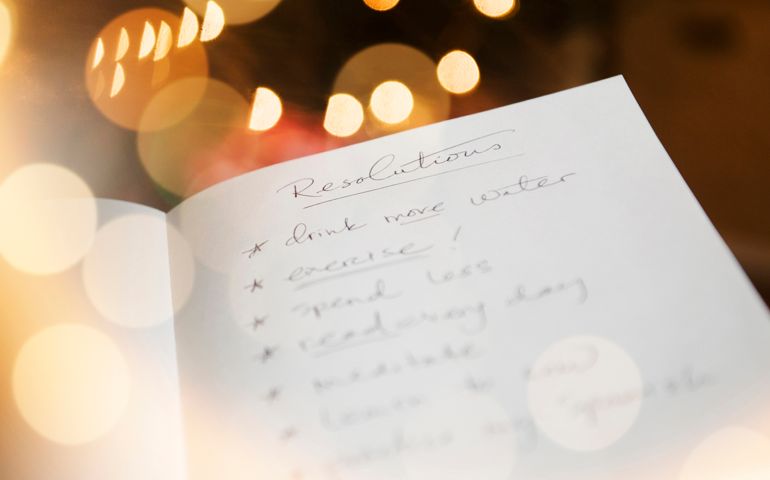 Resolutions
* drink more water
* exercise!
* spend less
* read every day
* meditate
* learn to
* practice my Spanish